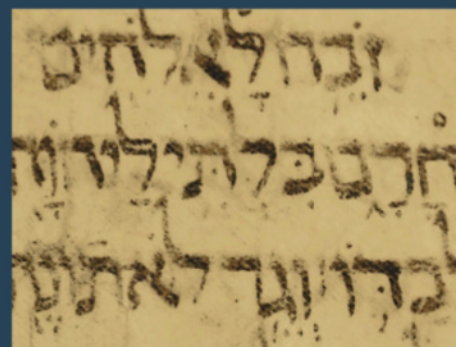 זבח לאלהים
חרם בלתי ליהוה
לבדו וגר לא